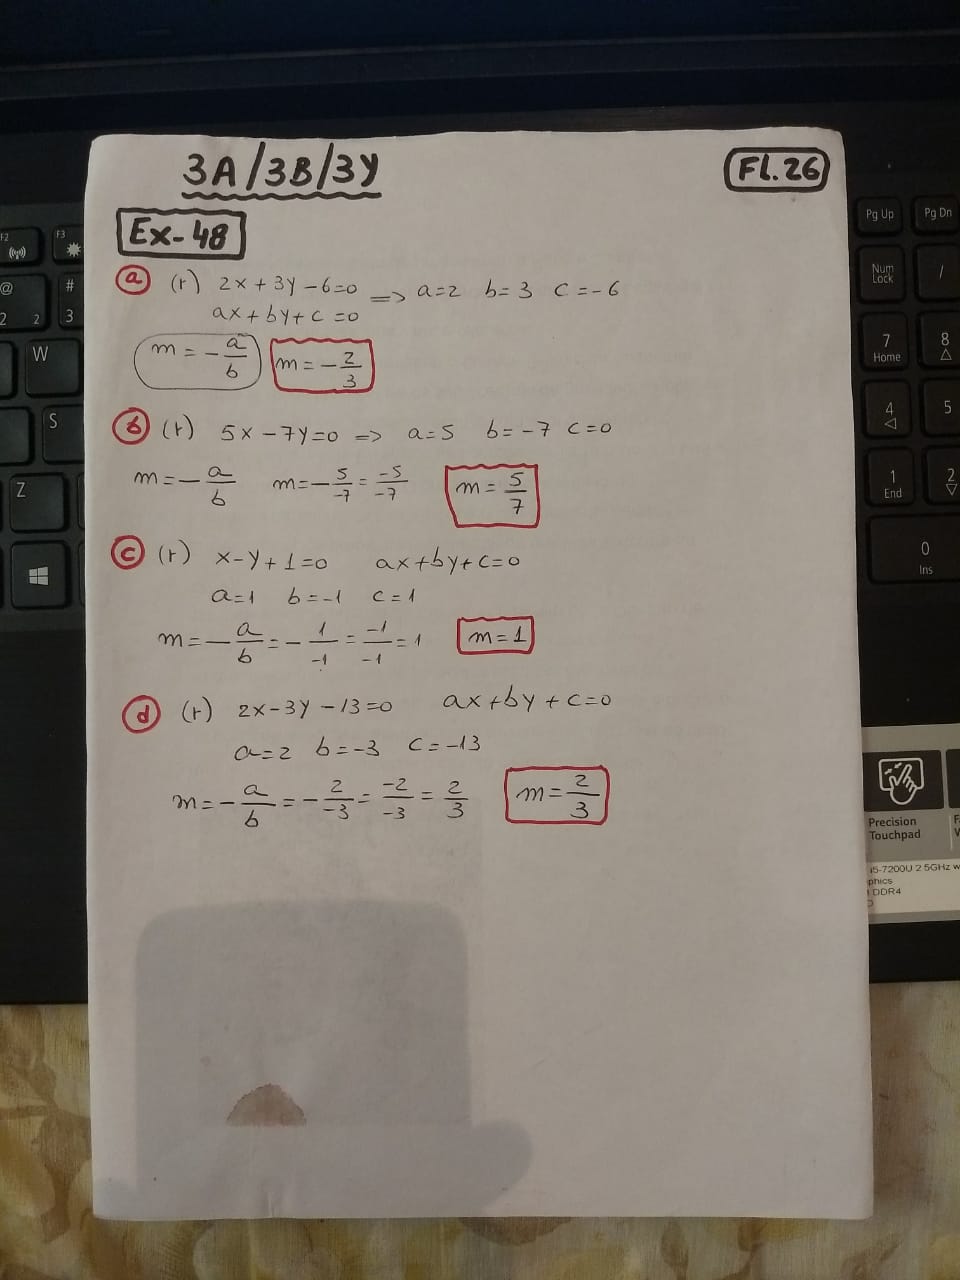 3A/3B/3Y
FL.26
Ex-48
a (r) 2x+3y-6=0 => a=2 b=3 c=-6
ax+by+c=0
m=-a/b m=-2/3
b (r) 5x-7y=0 => a=5 b=-7 c=0
m=-a/b m=-5/-7=-5/-7 m=5/7
c (r) x-y+1=0 ax+by+c=0
a=1 b=-1 c=1
m=-a/b=-1/-1=-1/-1=1 m=1
d (r) 2x-3y-13=0 ax+by+c=0
a=2 b=-3 c=-13
m=-a/b=-2/-3=-2/-3=2/3 m=2/3
F2
F3
@
2 2
#
3
W
S
Z
Pg Up
Pg Dn
Num
Lock
/
7
Home
8
4
5
1
End
2
0
Ins
Precision
Touchpad
i5-7200U 2 5GHz w
phics
DDR4